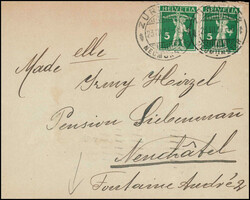 HELVETIA HELVETIA
5 5
Made elle
Jreny Hirzel
Pension Liebenman
Neuchâtel
Fontaine André 2